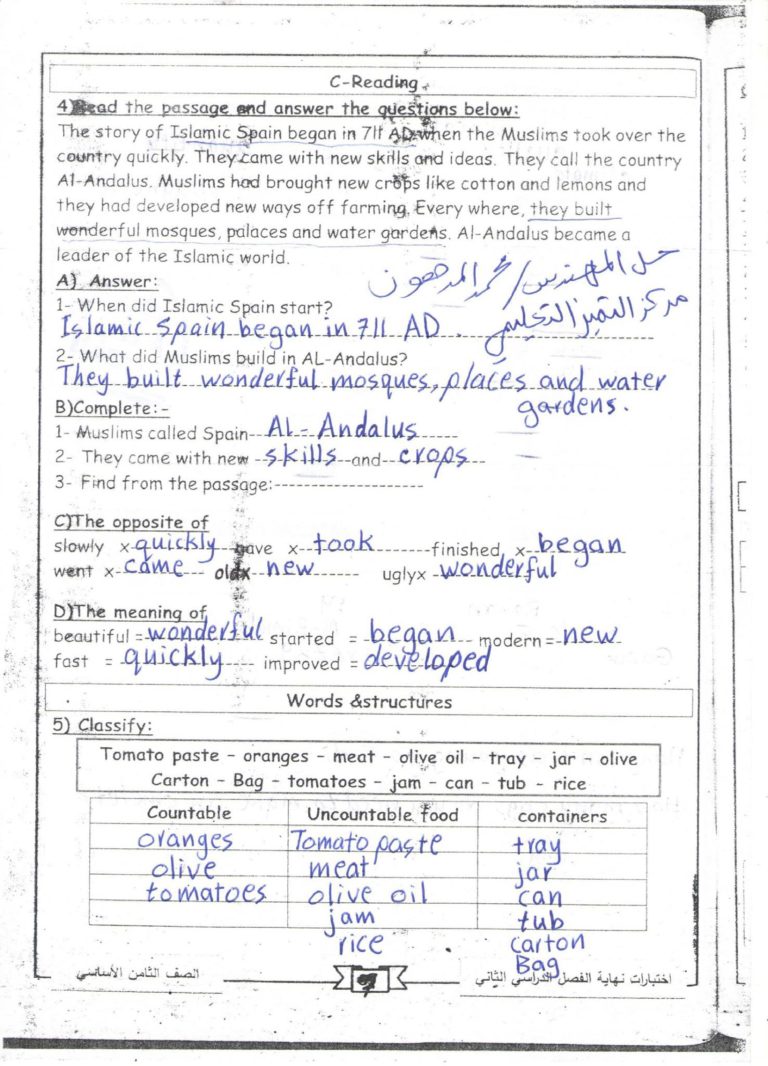 C-Reading
4) Read the passage and answer the questions below:
The story of Islamic Spain began in 711 AD when the Muslims took over the
country quickly. They came with new skills and ideas. They call the country
Al-Andalus. Muslims had brought new crops like cotton and lemons and
they had developed new ways off farming. Every where, they built
wonderful mosques, palaces and water gardens. Al-Andalus became a
leader of the Islamic world.
حل المهندس / محمد المدهون
A) Answer:
1- When did Islamic Spain start?
مركز التميز التعليمي
Islamic Spain began in 711 AD.
2- What did Muslims build in AL-Andalus?
They built wonderful mosques, places and water
gardens.
B)Complete:-
1- Muslims called Spain Al-Andalus
2- They came with new skills and crops
3- Find from the passage:-------------------
C)The opposite of
slowly x quickly gave x took finished x began
went x came old x new ugly x wonderful
D)The meaning of
beautiful = wonderful started = began modern = new
fast = quickly improved = developed
Words &structures
5) Classify:
Tomato paste - oranges - meat - olive oil - tray - jar - olive
Carton - Bag - tomatoes - jam - can - tub - rice
Countable Uncountable food containers
oranges Tomato paste tray
olive meat jar
tomatoes olive oil can
jam tub
rice carton
Bag
الصف الثامن الأساسي اختبارات نهاية الفصل الدراسي الثاني